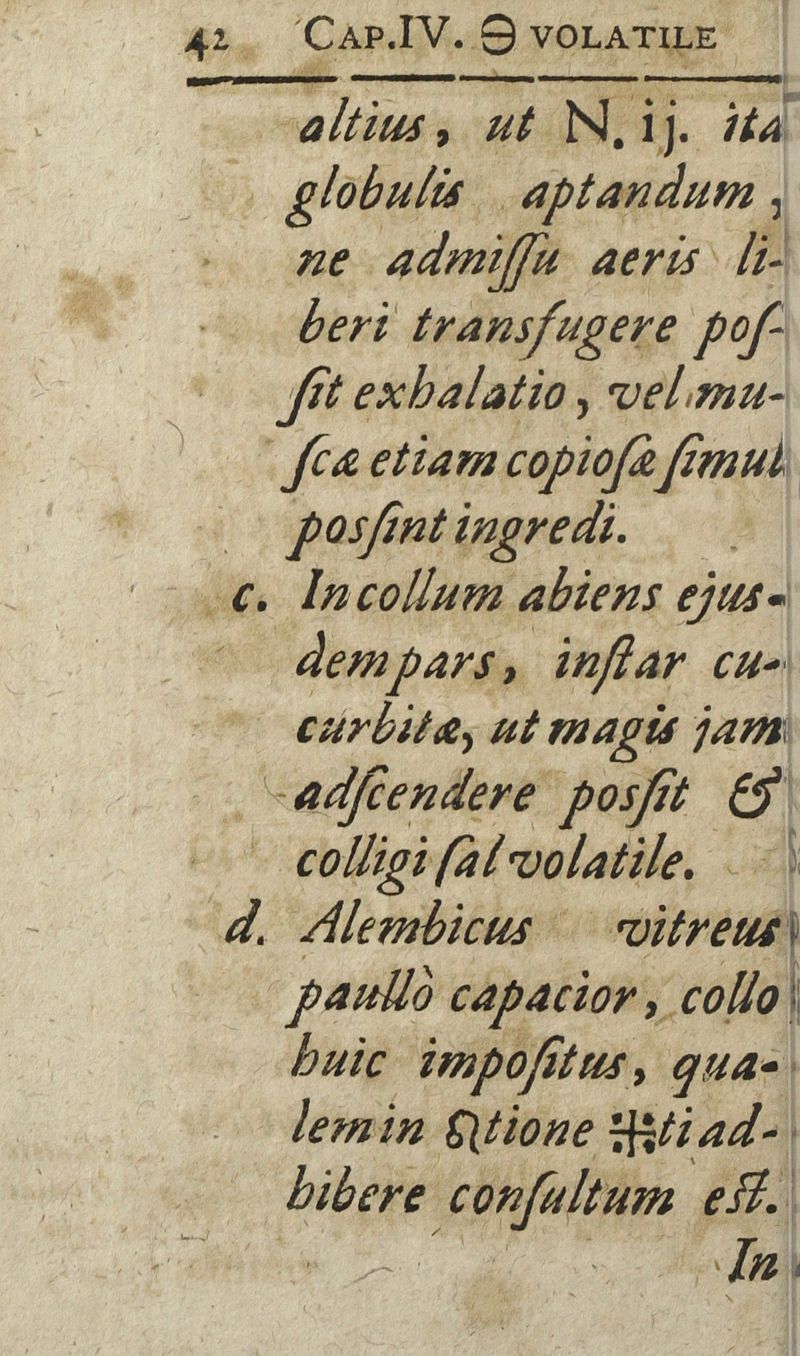 42 CAP.IV. 🜔 VOLATILE
altius, ut N. ij. ita
globulis aptandum,
ne admiſſu aeris li-
beri transfugere poſ-
ſit exhalatio, vel mu-
ſcæ etiam copioſæ ſimul
posſint ingredi.
c. In collum abiens ejus-
dem pars, inſtar cu-
curbitæ, ut magis jam
adſcendere posſit &
colligi ſal volatile.
d. Alembicus vitreus
paullò capacior, collo
huic impoſitus, qua-
lem in ♌tione ⁜ti ad-
hibere conſultum eſt.
In